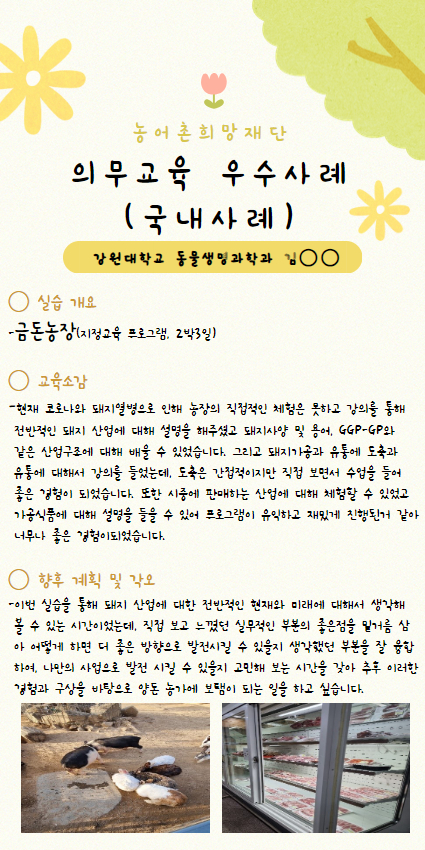 농어촌희망재단
의무교육 우수사례
(국내사례)
강원대학교 동물생명과학과 김○○
○ 실습 개요
-금돈농장(지정교육 프로그램, 2박3일)
○ 교육소감
-현재 코로나와 돼지열병으로 인해 농장의 직접적인 체험은 못하고 강의를 통해
전반적인 돼지 산업에 대해 설명을 해주셨고 돼지사양 및 용어, GGP-GP와
같은 산업구조에 대해 배울 수 있었습니다. 그리고 돼지가공과 유통에 도축과
유통에 대해서 강의를 들었는데, 도축은 간접적이지만 직접 보면서 수업을 들어
좋은 경험이 되었습니다. 또한 시중에 판매하는 산업에 대해 체험할 수 있었고
가공식품에 대해 설명을 들을 수 있어 프로그램이 유익하고 재밌게 진행된거 같아
너무나 좋은 경험이되었습니다.
○ 향후 계획 및 각오
-이번 실습을 통해 돼지 산업에 대한 전반적인 현재와 미래에 대해서 생각해
볼 수 있는 시간이었는데, 직접 보고 느꼈던 실무적인 부분의 좋은점을 밑거름 삼
아 어떻게 하면 더 좋은 방향으로 발전시킬 수 있을지 생각했던 부분을 잘 융합
하여, 나만의 사업으로 발전 시킬 수 있을지 고민해 보는 시간을 갖아 추후 이러한
경험과 구상을 바탕으로 양돈 농가에 보탬이 되는 일을 하고 싶습니다.